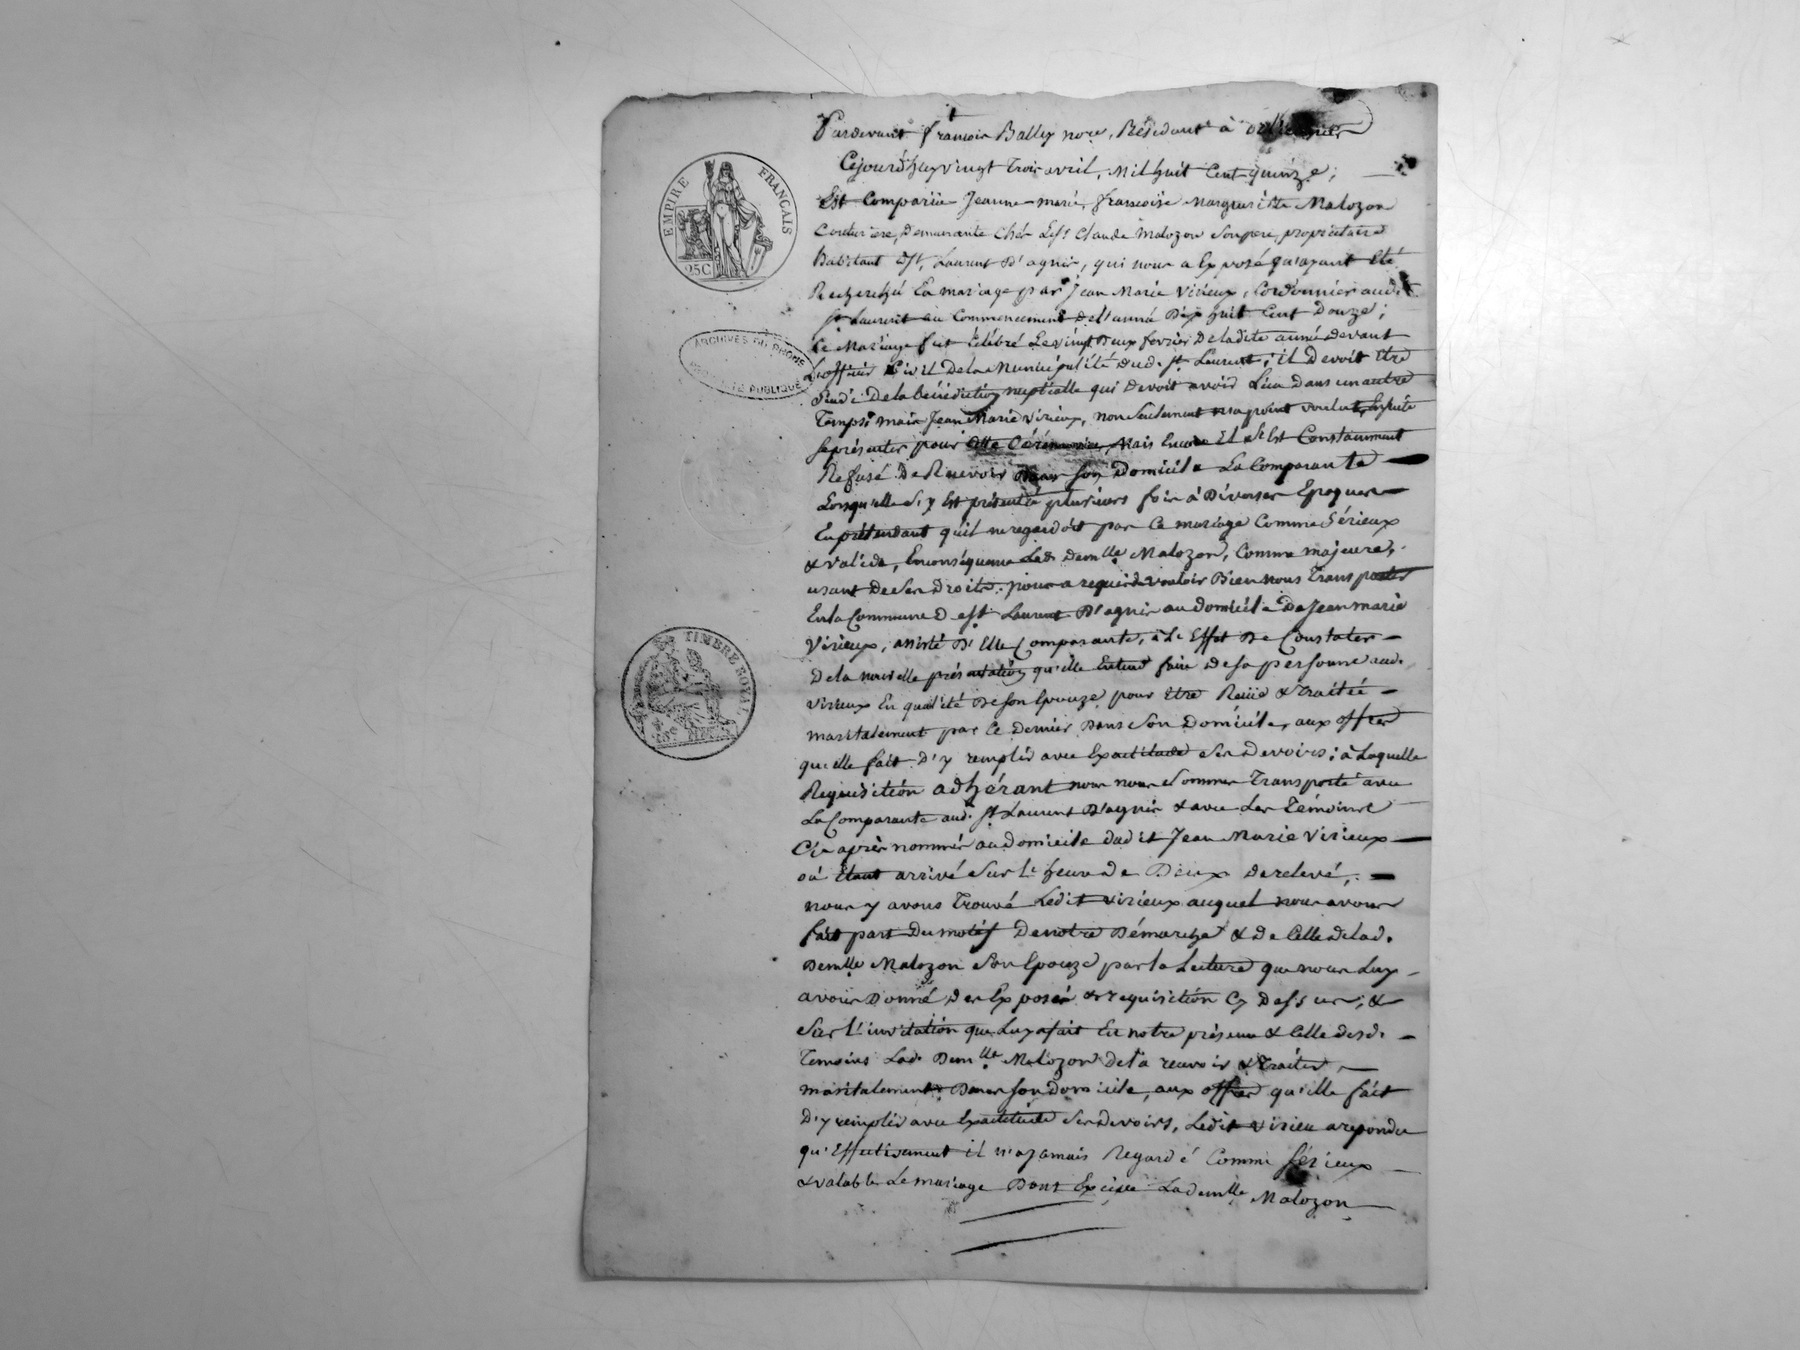 Pardevant françois Bally nore, Résidant à
Cejourd'huy vingt trois avril, mil huit Cent quinze ;
Est Comparüe Jeanne-marie, françoise Marguerite Malozon
Couturiere, Demeurante chés le Sr Claude Malozon Son pere, propriétaire
habitant à St, Laurent D'agnis, qui nous a Exposé qu'ayant Eté
Recherchée En mariage par Jean Marie Virieux, Cordonnier aud.t
St Laurent au Commencement de l'année Dix huit Cent Douze ;
Ce Mariage fut Célébré Le vingt Deux fevrier De ladite année devant
L'officier Civil De la Municipalité dud. St. Laurent ; il Devoit Etre
Suivi De la bénédiction nuptialle qui Devoit avoir Lieu Dans un autre
Temps ; mais Jean Marie Virieux, non Seulement n'a point voulut Ensuite
Se présenter pour Cette Cérémonie, Mais Encore Il s'Est Constamment
Refusé De Recevoir Dans Son Domicile La Comparante
Lorsqu'elle S'y Est présentée plusieurs fois à Diverses Epoques
En prétendant qu'il ne regardoit pas Ce mariage Comme Sérieux
& valide, En conséquence Lade Demlle Malozon, Comme majeure,
usant De Ses Droits, nous a requis de vouloir Bien nous Transporter
En la Commune De St Laurent D'agnis au domicile De Jean marie
Virieux, assisté D'Elle Comparante, à L'Effet De Constater
De la nouvelle présentation qu'elle Entend faire De Sa personne aud.
Virieux En qualité De Son Epouze, pour Etre Reçüe & Traitée
maritalement par Ce Dernier Dans Son Domicile, aux offres
qu'elle fait D'y remplir avec Exactitude Ses Devoirs ; à Laquelle
Requisition adhérant nous nous Sommes Transporté avec
La Comparante aud. St Laurent D'agnis & avec Les Témoins
Cie après nommés au domicile dudit Jean Marie Virieux
où Etant arrivé Sur L'heure De Deux De relevé,
nous y avons Trouvé Ledit Virieux auquel nous avons
fait part Du motif De notre Démarche & De Celle de lad.
Demlle Malozon Son Epouze par la Lecture que nous Luy
avons Donné des Exposé & requisition Cy Dessus ; &
Sur L'invitation que Luy a fait En notre présence & Celle desd.
Temoins Lade Demlle Malozon de la recevoir & Traiter
maritalement Dans Son Domicile, aux offres qu'elle fait
D'y remplir avec Exactitude Ses Devoirs, Ledit Virieu a répondu
qu'Effectivement il n'a jamais Regardé Comme Sérieux
& valable Le mariage Dont Excipe Lademlle Malozon
EMPIRE FRANÇAIS
25C
ARCHIVES DU RHONE
PROPRIÉTÉ PUBLIQUE
TIMBRE ROYAL